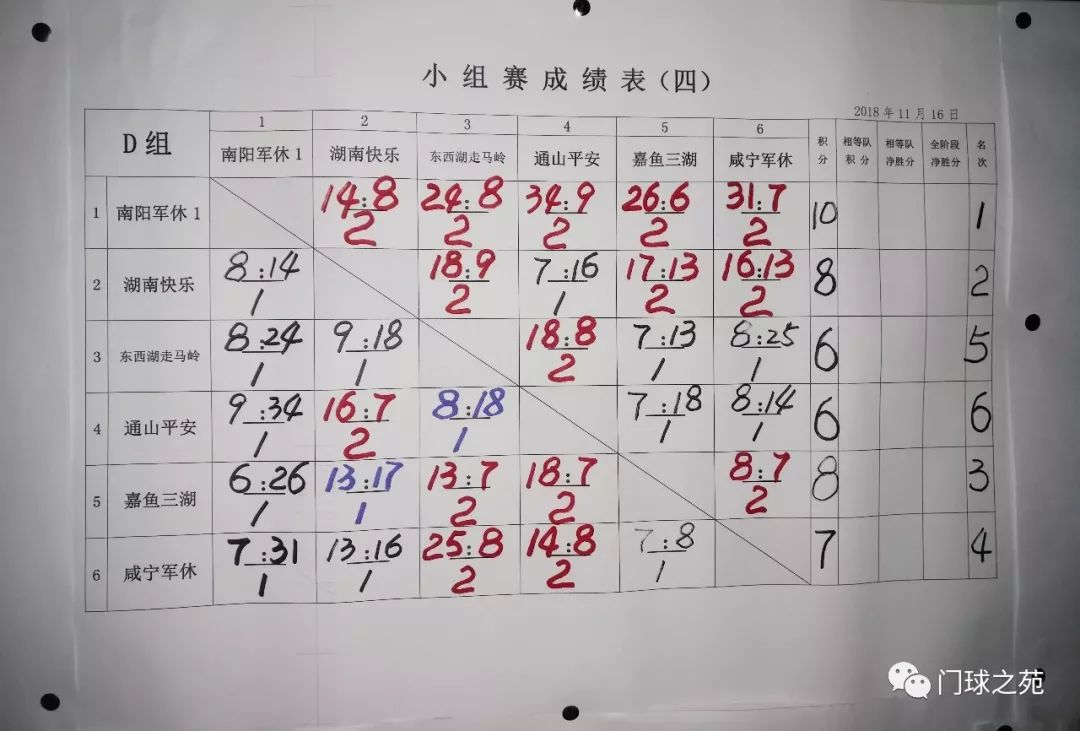 小组赛成绩表（四）
2018年11月16日
D组 1 2 3 4 5 6 积分 相等队积分 相等队净胜分 全阶段净胜分 名次
南阳军休1 湖南快乐 东西湖走马岭 通山平安 嘉鱼三湖 咸宁军休
1 南阳军休1 14:8 24:8 34:9 26:6 31:7 10 1
2 2 2 2 2
2 湖南快乐 8:14 18:9 7:16 17:13 16:13 8 2
1 2 1 2 2
3 东西湖走马岭 8:24 9:18 18:8 7:13 8:25 6 5
1 1 2 1 1
4 通山平安 9:34 16:7 8:18 7:18 8:14 6 6
1 2 1 1 1
5 嘉鱼三湖 6:26 13:17 13:7 18:7 8:7 8 3
1 1 2 2 2
6 咸宁军休 7:31 13:16 25:8 14:8 7:8 7 4
1 1 2 2 1
门球之苑